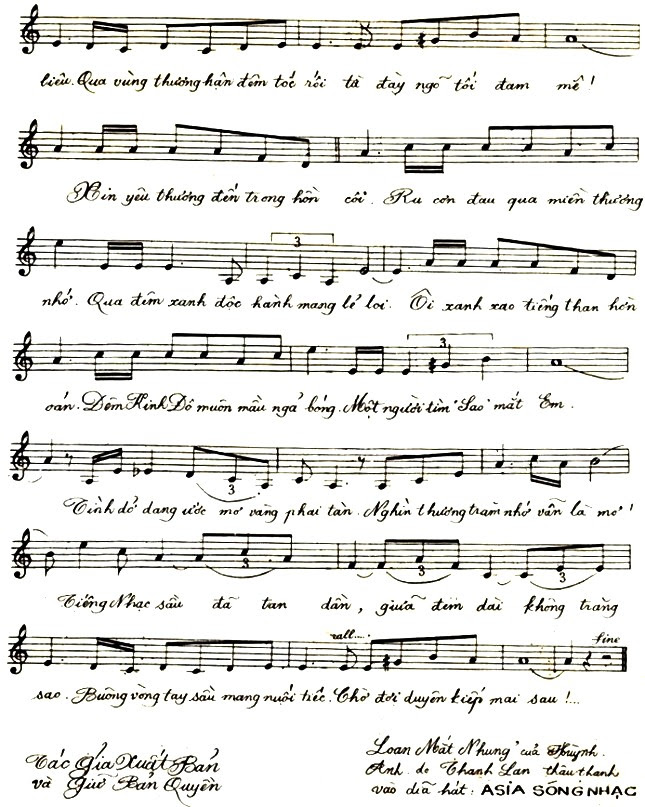 liêu. Qua vùng thương hận đêm tóc rối tà đầy ngõ tối đam mê!
Xin yêu thương đến trong hồn côi. Ru cơn đau qua miền thương
3
nhớ. Qua đêm xanh độc hành mang lẻ loi. Ôi xanh xao tiếng than hờn
3
oán. Đêm Kinh Đô muôn mầu ngả bóng. Một người tìm "Sao" mắt Em.
3
Tình dở dang ước mơ vàng phai tàn. Nghìn thương trăm nhớ vẫn là mơ!
3 3 3
Tiếng Nhạc sầu đã tan dần, giữa đêm dài không trăng
rall.... fine
sao. Buông vòng tay sầu mang nuối tiếc. Chờ đợi duyên kiếp mai sau!...
Tác Giả Xuất Bản
và Giữ Bản Quyền
Loan Mắt Nhung" của Huỳnh.
Anh. do Thanh Lan thâu thanh
vào dĩa hát: ASIA SÓNG NHẠC